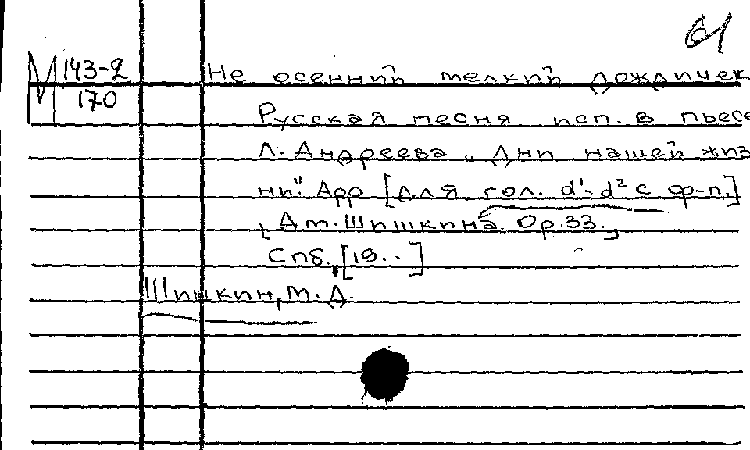 61
М 143-2
170
Не осенний мелкий дождичек
Русская песня исп. в пьесе
Л. Андреева „Дни нашей жиз
ни". Арр [для гол. d¹-d² с ф-п.]
[Дм. Шишкина. Ор. 33.]
Спб., [19..]
Шишкин, М. Д.